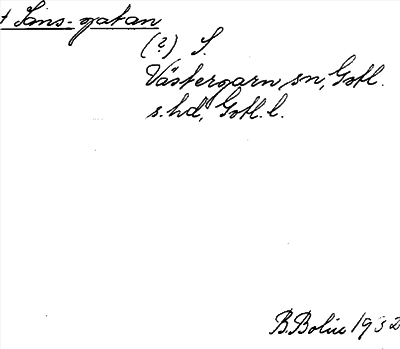 † Sans-gatan
(?) S.
Västergarn sn, Gotl.
s. hd, Gotl. l.
B. Bolin 1932